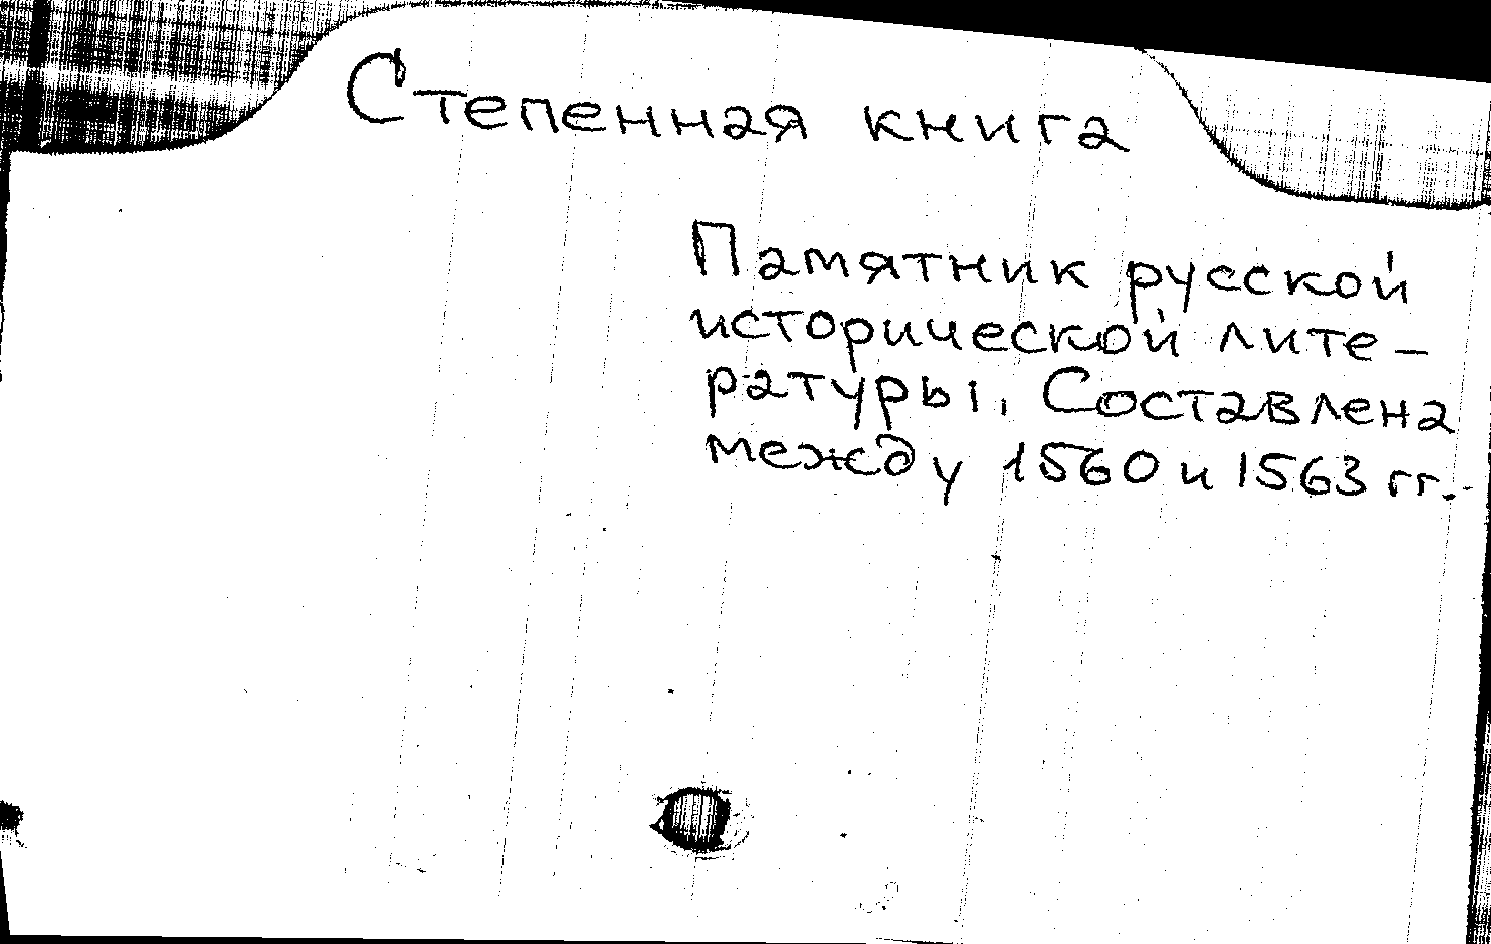 Степенная книга
Памятник русской
исторической лите-
ратуры. Составлена
между 1560 и 1563 гг.